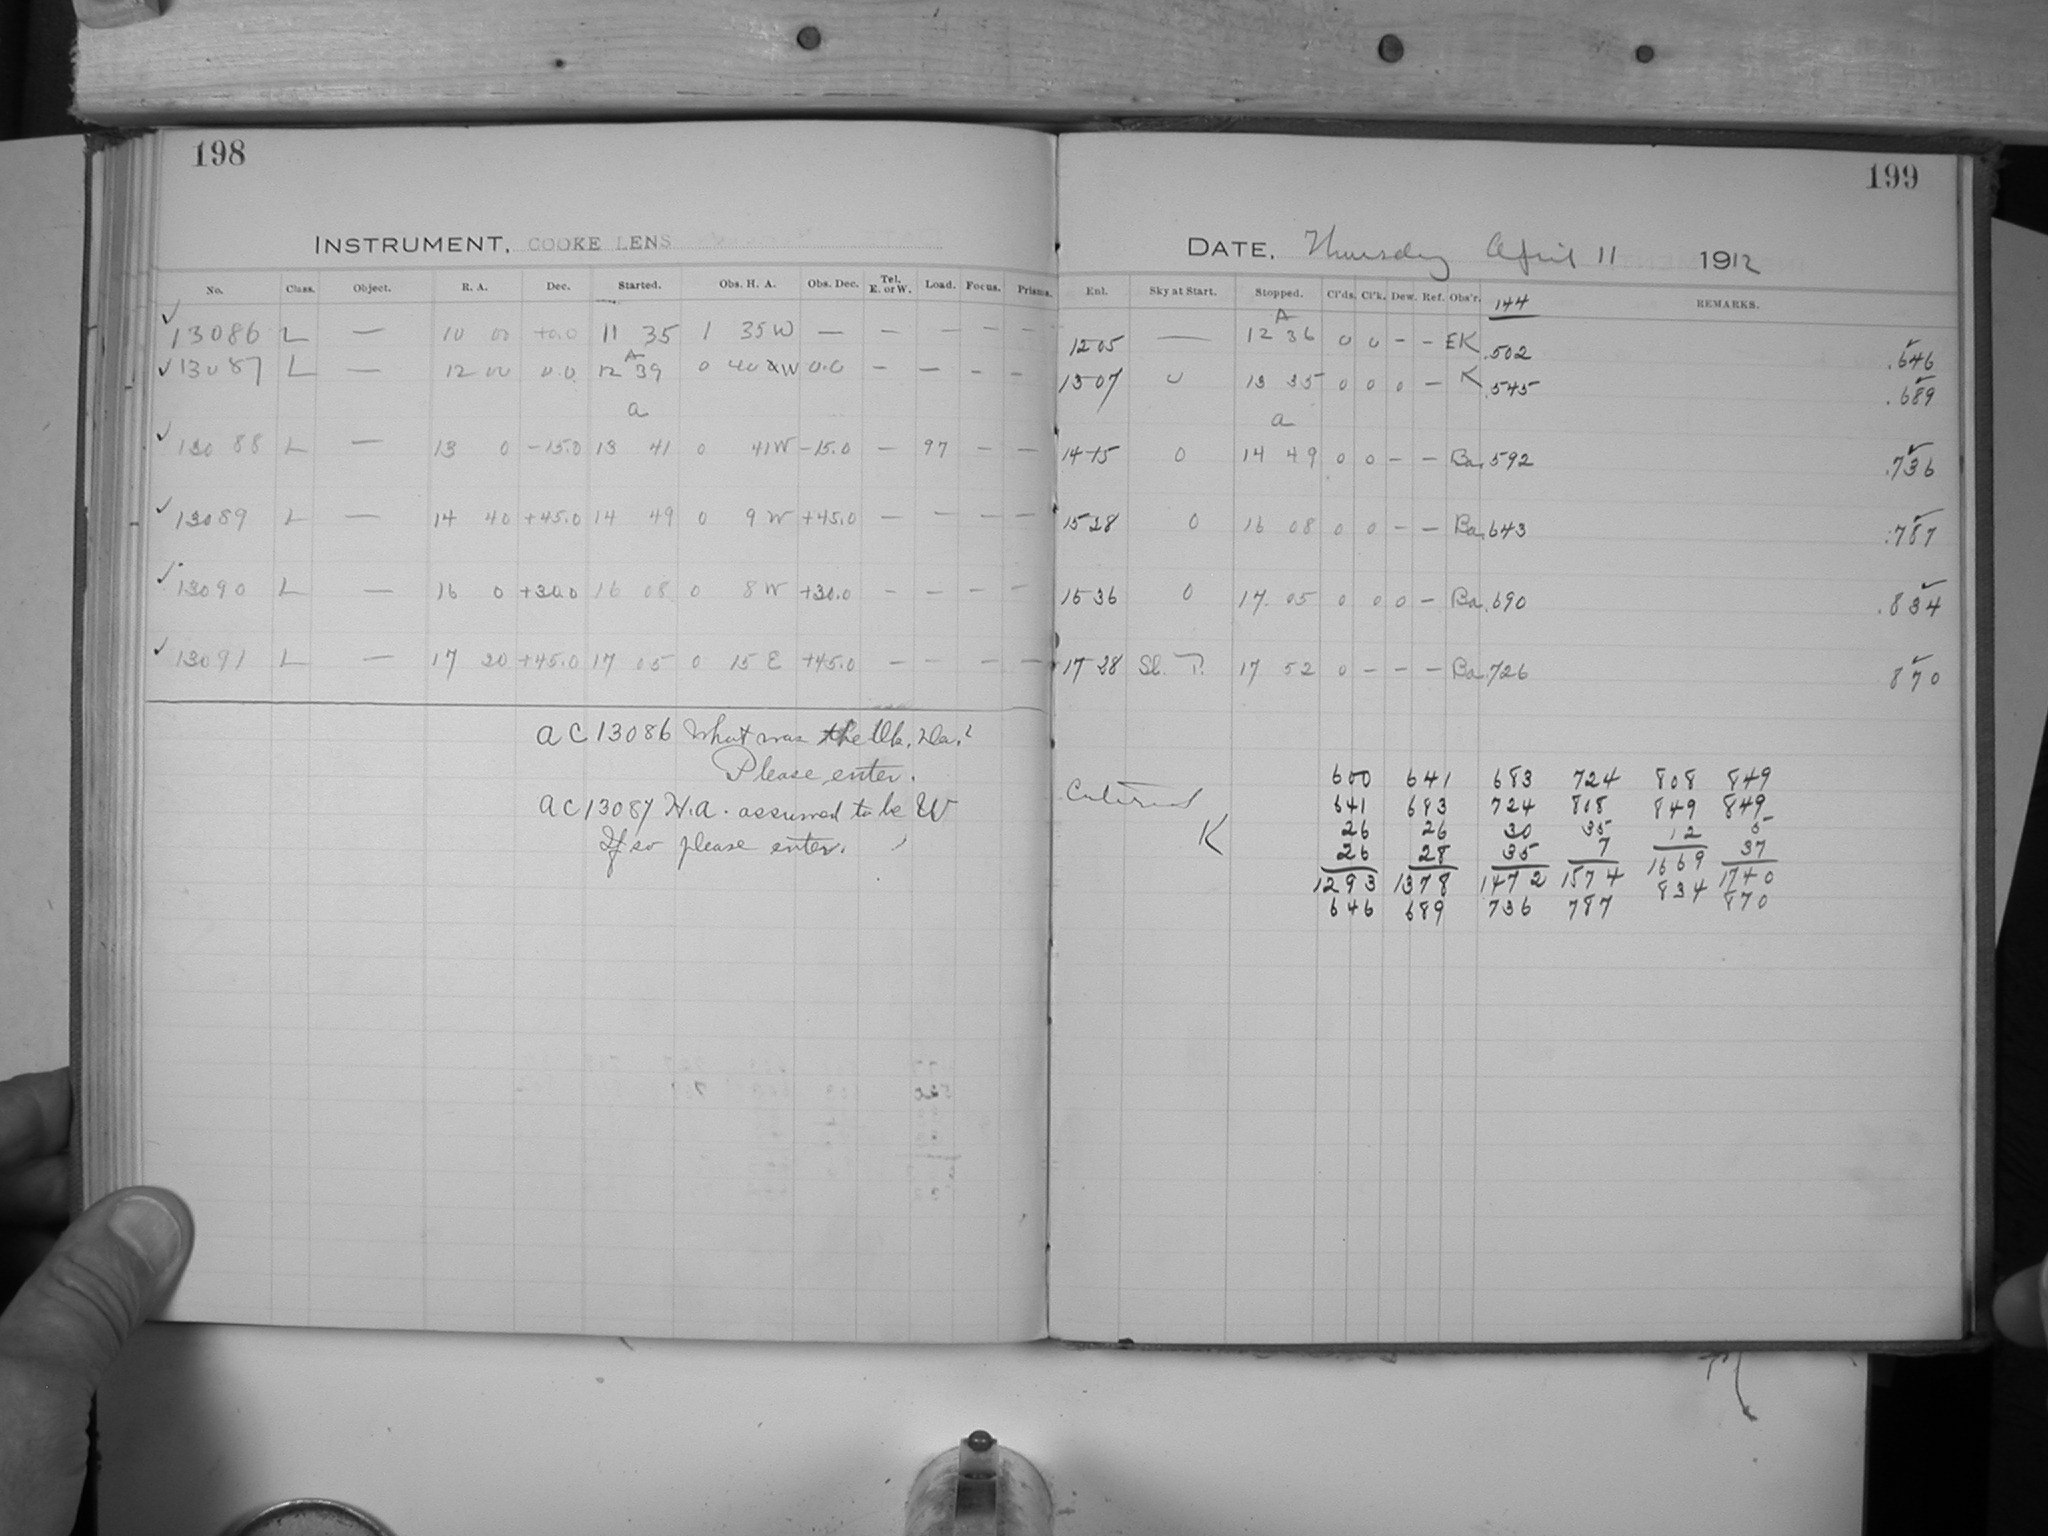 198
INSTRUMENT, COOKE LENS
No. Class. Object. R. A. Dec. Started. Obs. H. A. Obs. Dec. Tel. E. or W. Load. Focus. Prisms.
✓ 13086 L — 10 00 +0.0 11 35 1 35 W — — — — —
A
✓ 13087 L — 12 00 0.0 12 39 0 40 W 0.0 — — — —
a
✓ 13088 L — 13 0 -15.0 13 41 0 41 W -15.0 — 97 — —
✓ 13089 L — 14 40 +45.0 14 49 0 9 W +45.0 — — — —
✓ 13090 L — 16 0 +30.0 16 08 0 8 W +30.0 — — — —
✓ 13091 L — 17 20 +45.0 17 05 0 15 E +45.0 — — — —
AC 13086 What was the Ob. Dec.?
Please enter.
AC 13087 H.A. assumed to be W
If so please enter.
199
DATE, Thursday April 11 1912
Enl. Sky at Start. Stopped. Cl'ds. Cl'k. Dew. Ref. Obs'r. 144 REMARKS.
A
12 05 — 12 36 0 0 — — EK .502 .646 ✓
13 07 0 13 35 0 0 0 — K .545 .689 ✓
a
14 15 0 14 49 0 0 — — Ba .592 .736 ✓
15 28 0 16 08 0 0 — — Ba .643 .787 ✓
16 36 0 17 05 0 0 0 — Ba .690 .834 ✓
17 28 Sl. T. 17 52 0 — — — Ba .726 870 ✓
Entered
K
600 641 683 724 808 849
641 683 724 808 849 849
26 26 30 35 12 5
26 28 35 7 1669 37
1293 1378 1472 1574 834 1740
646 689 736 787 870